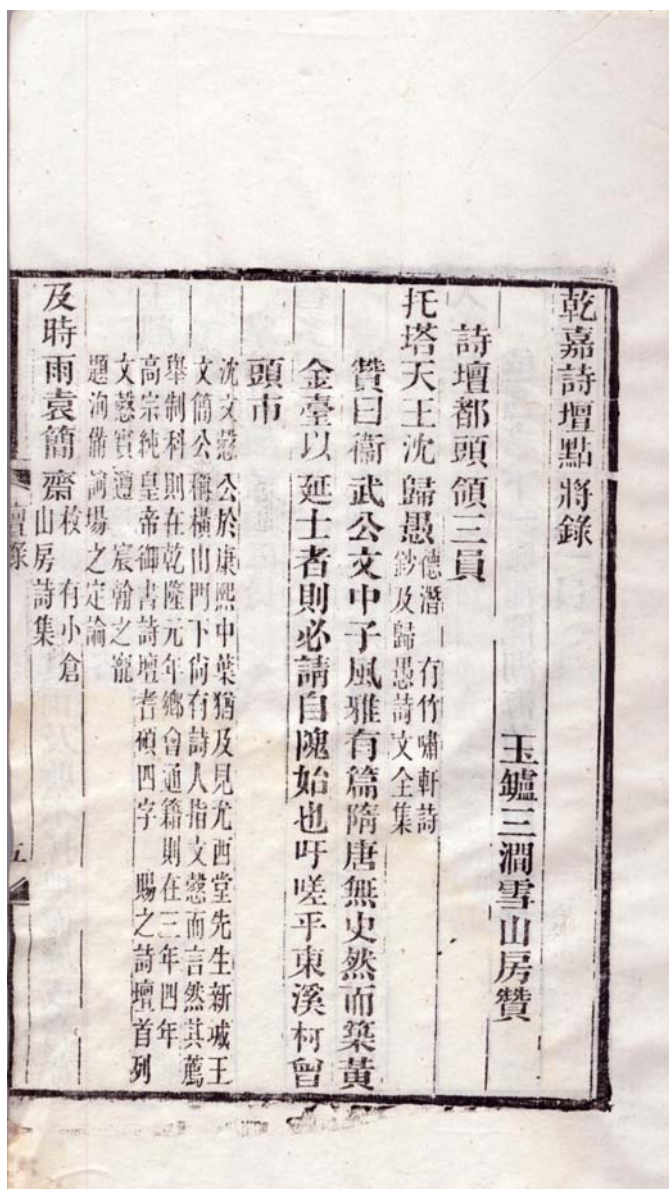 乾嘉詩壇點將錄
玉鑪三澗雪山房贊
詩壇都頭領三員
托塔天王沈歸愚
德潛 有竹嘯軒詩
鈔及歸愚詩文全集
贊曰衞武公文中子風雅有篇隋唐無史然而築黃
金臺以延士者則必請自隗始也吁嗟乎東溪村曾
頭市
沈文慤 公於康熙中葉猶及見尤西堂先生新城王
文簡公稱橫山門下尙有詩人指文慤而言然其薦
舉制科則在乾隆元年鄉會通籍則在三年四年
高宗純皇帝御書詩壇耆碩四字 賜之詩壇首列
文慤實遵 宸翰之寵
題洵備詞場之定論
及時雨袁簡齋
枚 有小倉
山房詩集
壇錄
五